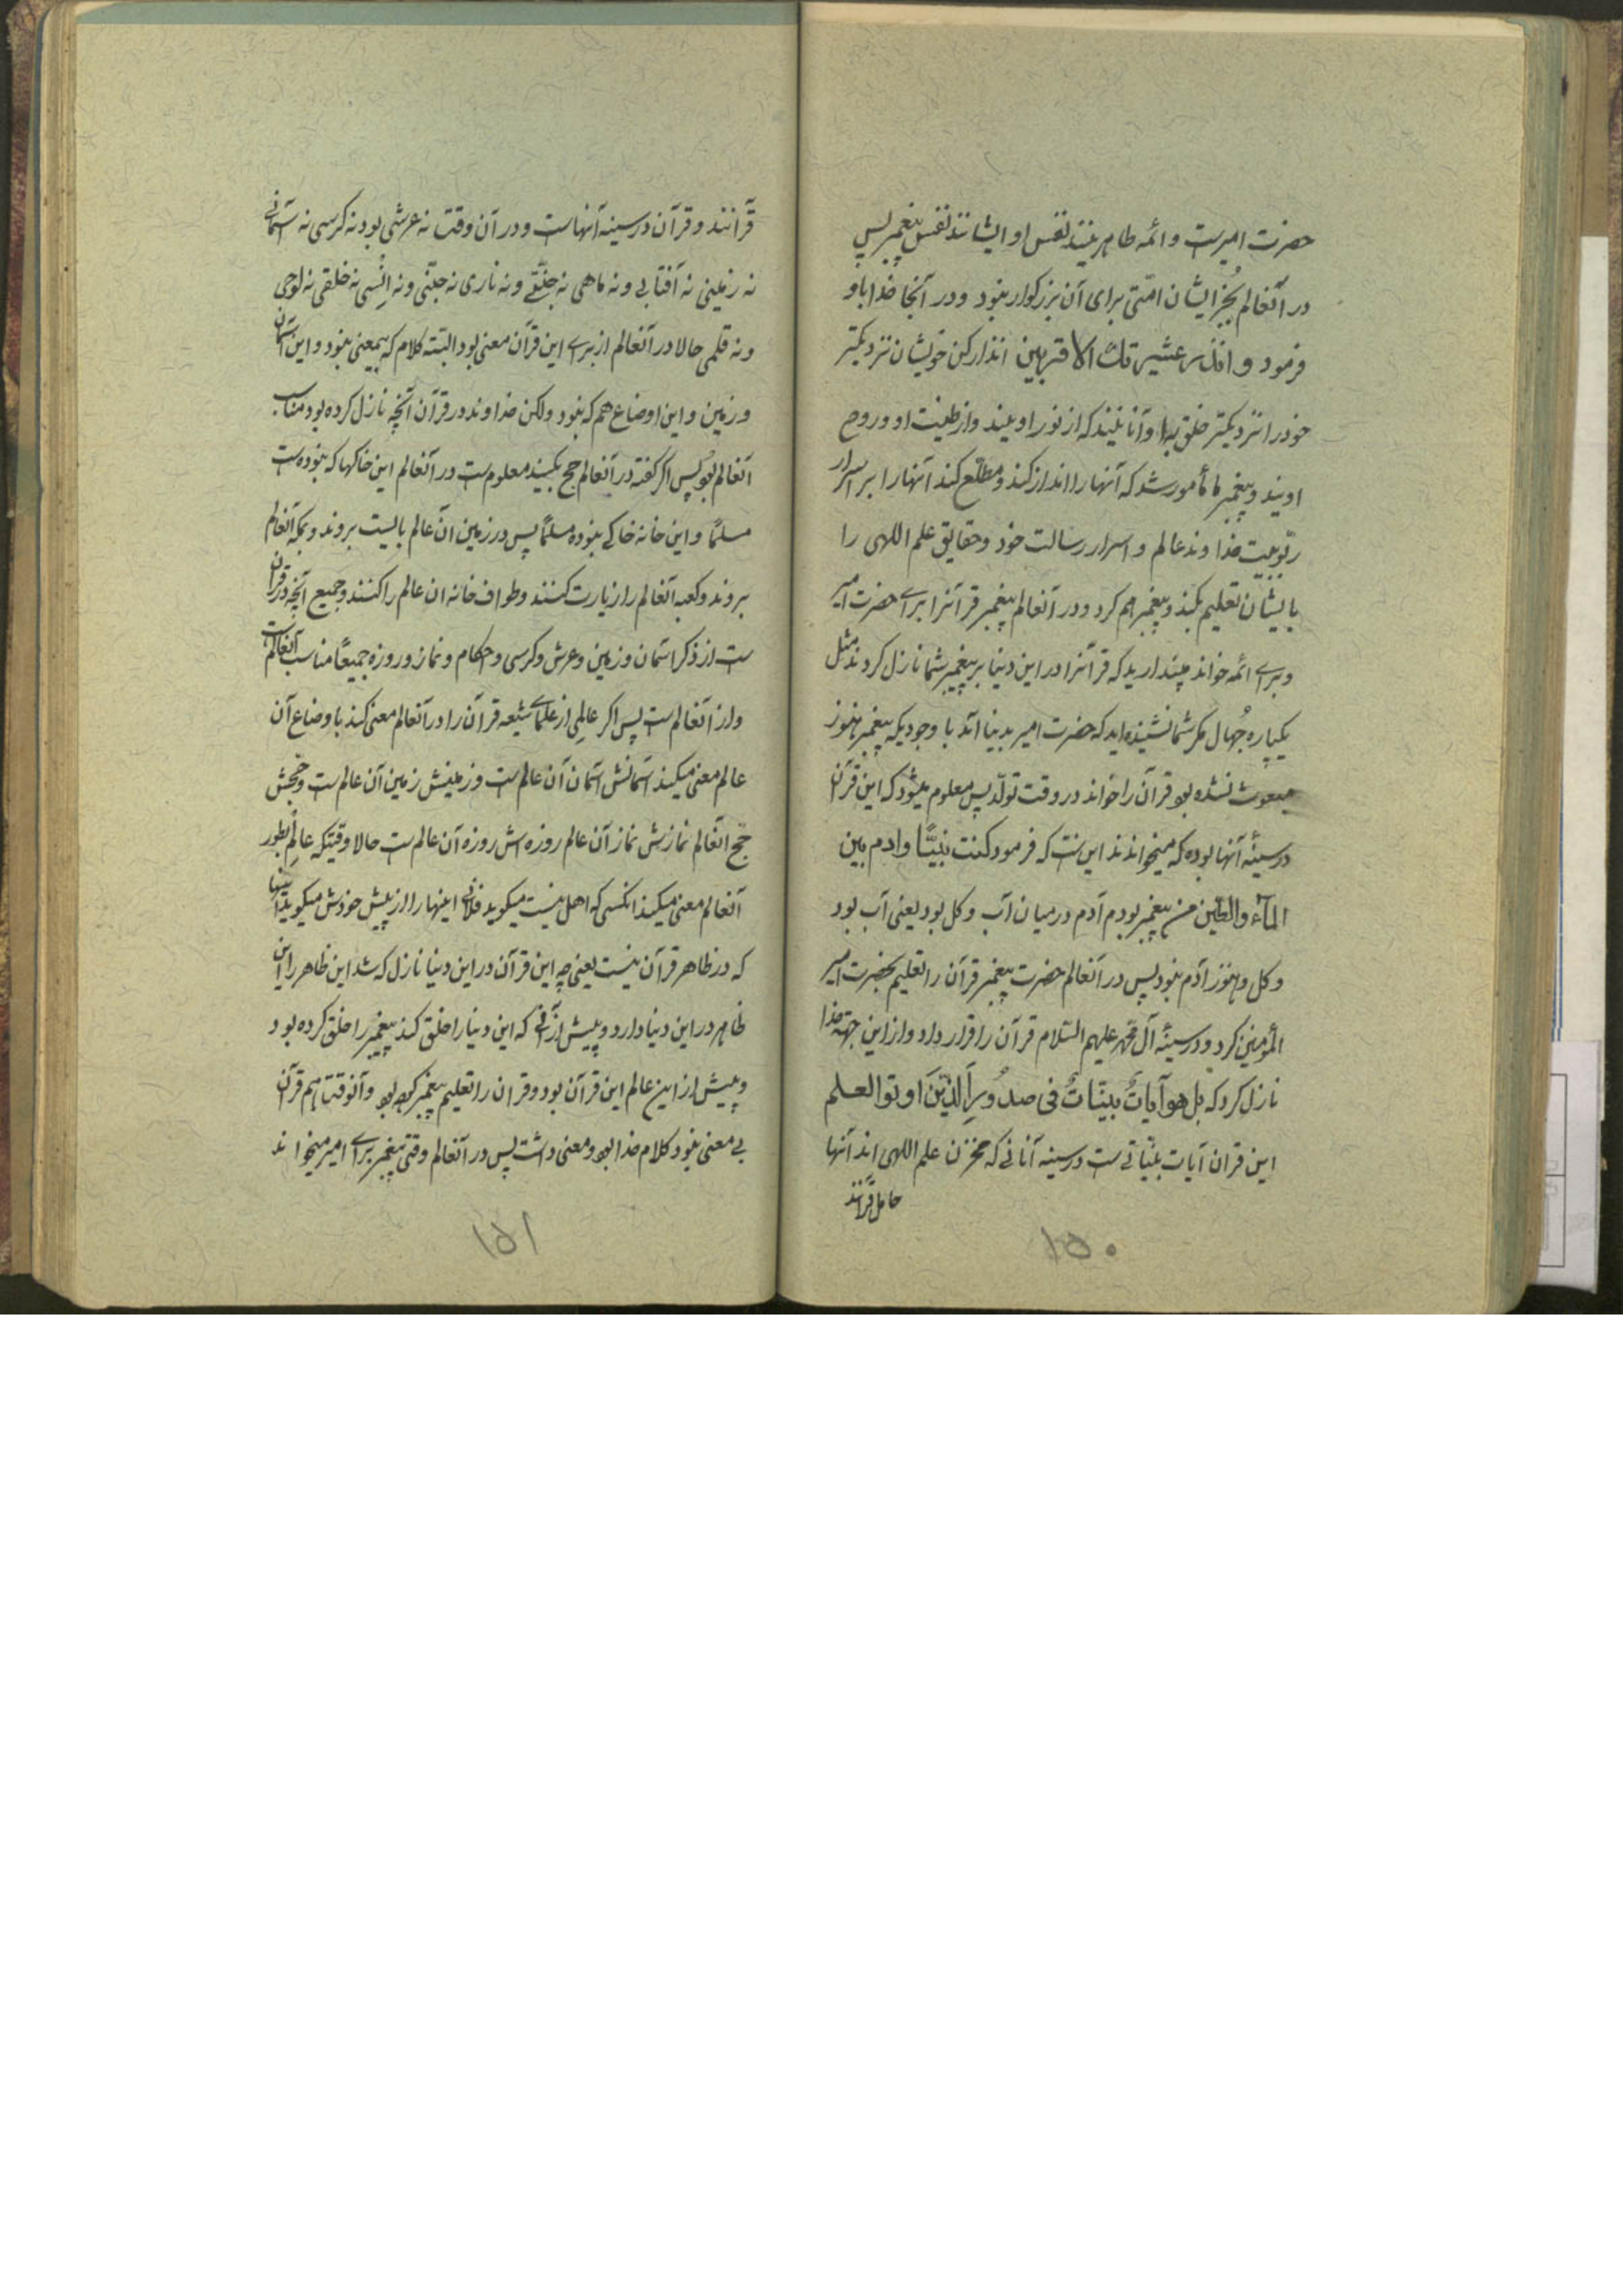 حضرت امیرست و ائمه طاهرینند نفس او ایشانند نفس پیغمبر پس
در آنعالم بجُز ایشان امتی برای آن بزرکوار نبود و در آنجا خدا باو
فرمود و انذر عشیرتک الاقربین انذار کن خویشان نزدیکتر
خود را نزدیکتر خلق باو آنانیند که از نور اویند و از طینت او و روح
اویند و پیغمبر مأمور شد که آنها را انذار کند و مطلّع کند آنها را بر اسرار
ربّوبیت خداوند عالم و اسرار رسالت خود و حقایق علم اللهی را
بایشان تعلیم بکند و پیغمبر هم کرد و در آنعالم پیغمبر قرآنرا برای حضرت امیر
و برای ائمه خواند چپندارید که قرآنرا در این دنیا بر پیغمبر شما نازل کردند مثل
یکپاره جُهال مکر شما نشنیده اید که حضرت امیر بدنیا آمد با وجودیکه پیغمبر هنوز
مبعوث نشده بود قرآن را خواند در وقت تولّد پس معلوم میشود که این قرآن
در سینهٔ آنها بوده که میخواندند این ست که فرمود کنت نبیّاً و ادم بین
المآء والطین من پیغمبر بودم آدم در میان آب و کل بود یعنی آب بود
و کل و هنوز آدم نبود پس در آنعالم حضرت پیغمبر قرآن را تعلیم بحضرت امیر
المؤمنین کرد و در سینهٔ آل محمّد علیهم السّلام قرآن را قرار داد و از این جهة خدا
نازل کرد که بل هو آیاتٌ بیّناتٌ فی صدُورِ الَّذینَ اوتوا العلم
این قران آیات بیّناتی ست در سینه آنانی که مخزن علم اللهی اند آنها
حامل قرآنند
۱۵۰
قرآنند و قرآن در سینه آنهاست و در آن وقت نه عرشی بود نه کرسی نه آسمانی
نه زمینی نه آفتابی و نه ماهی نه جنّتی و نه ناری نه جنّی و نه اِنسی نه خلقی نه لوحی
و نه قلمی حالا در آنعالم از برای این قرآن معنی بود البتّه کلام که بیمعنی نبود و این آسمان
و زمین و این اوضاع هم که نبود ولکن خداوند در قرآن آنچه نازل کرده بود مناسب
آنعالم بود پس اکر کفته در آنعالم حج بکنید معلوم ست در آنعالم این خاکها که نبوده ست
مسلمّاً و این خانه خاکی نبوده مسلمّاً پس در زمین ان عالم بایست بروند و بمکه آنعالم
بروند و کعبه آنعالم را زیارت کنند و طواف خانه ان عالم را کنند و جمیع آنچه در قران
ست از ذکر اسمان و زمین و عرش و کرسی و احکام و نماز و روزه جمیعاً مناسب آنعالمست
و از آنعالم ست پس اکر عالمِی از علمای شیعه قرآن را در آنعالم معنی کند باوضاع آن
عالم معنی میکند آسمانش آسمان آن عالم ست و زمینش زمین آن عالم ست و حجّش
حجّ آنعالم نمازش نماز آن عالم روزه اش روزه آن عالم ست حالا وقتیکه عالِم بطور
آنعالم معنی میکند انکسی که اهل نیست میکوید فلانی اینها را از پیش خودش میکوید اینها
که در ظاهر قرآن نیست یعنی چه این قرآن در این دنیا نازل که شد این ظاهر را این
ظاهر در این دنیا دارد و پیش از آنی که این دنیا را خلق کند پیغمبر را خلق کرده بود
و پیش از این عالم این قرآن بود و قران را تعلیم پیغمبر کرده بود و آنوقتها هم قرآن
بی معنی نبود کلام خدا بود و معنی داشت پس در آنعالم وقتی پیغمبر برای امیر میخواند
۱۵۱